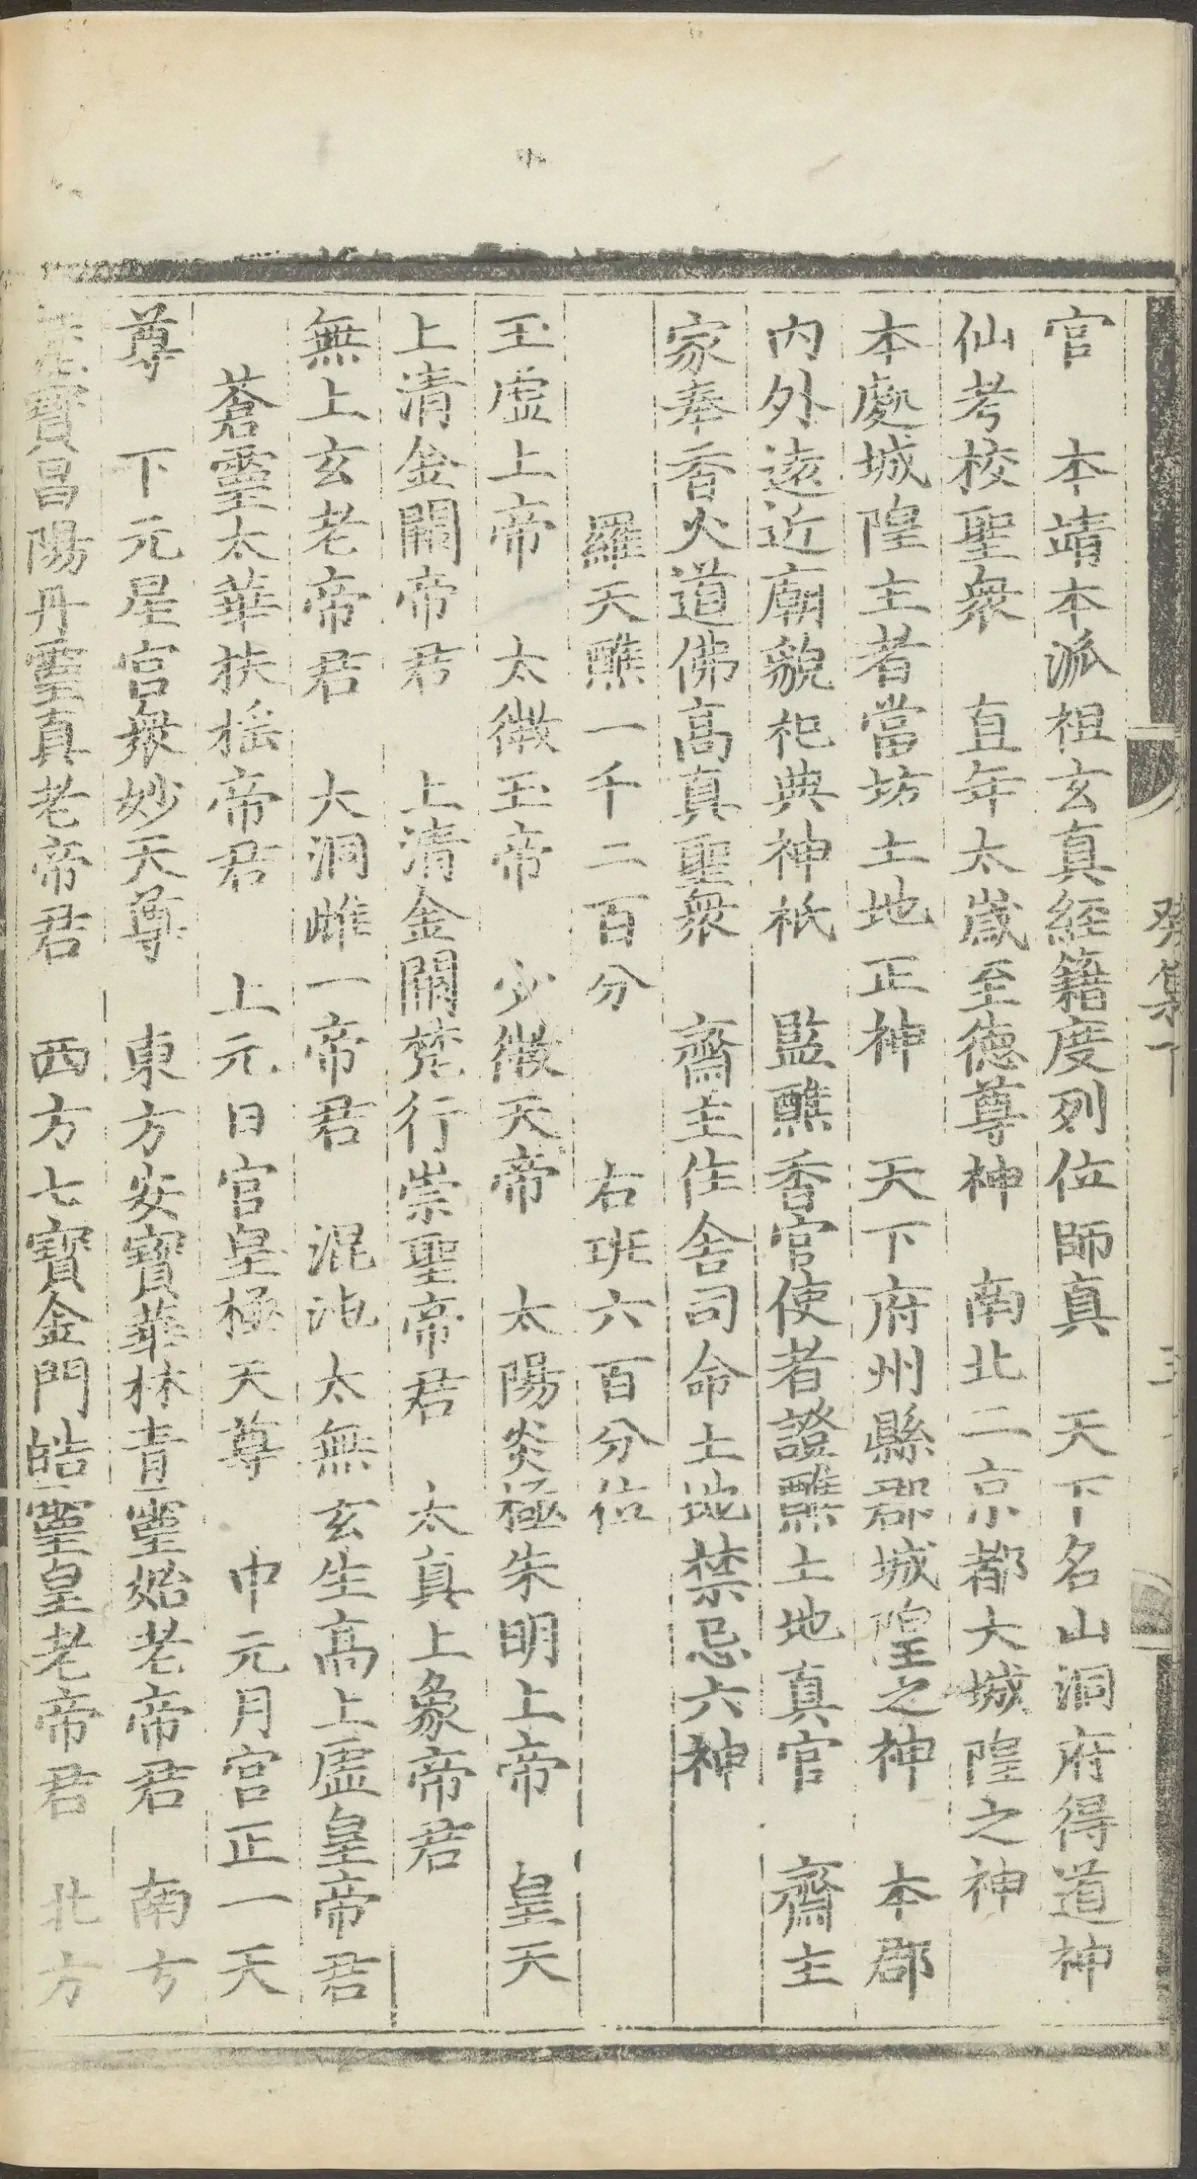 癸集下
官　本靖本派祖玄真經籍度列位師真　天下名山洞府得道神
仙考校聖衆　直年太歲至德尊神　南北二京都大城隍之神
本處城隍主者當坊土地正神　天下府州縣郡城隍之神　本郡
内外遠近廟貌祀典神祇　監醮香官使者證醮土地真官　齋主
家奉香火道佛高真聖衆　齋主住舍司命土地禁忌六神
羅天醮一千二百分　右班六百分位
玉虛上帝　太微玉帝　少微天帝　太陽炎極朱明上帝　皇天
上清金闕帝君　上清金闕梵行崇聖帝君　太真上象帝君
無上玄老帝君　大洞雌一帝君　混沌太無玄生高上虛皇帝君
蒼靈太華扶摇帝君　上元日官皇極天尊　中元月宫正一天
尊　下元星宫衆妙天尊　東方安寶華林青靈始老帝君　南方
寶昌陽丹靈真老帝君　西方七寶金門皓靈皇老帝君　北方